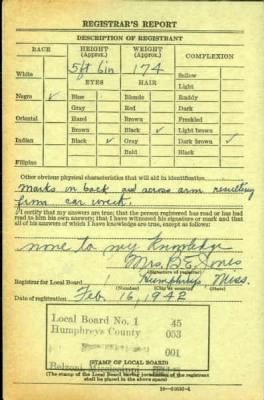 REGISTRAR'S REPORT
DESCRIPTION OF REGISTRANT
RACE HEIGHT (Approx.) WEIGHT (Approx.) COMPLEXION
White 5 ft 6 in 174 Sallow
EYES HAIR Light
Negro ✓ Blue Blonde Ruddy
Gray Red Dark
Oriental Hazel Brown Freckled
Brown Black ✓ Light brown
Indian Black ✓ Gray Dark brown ✓
Bald Black
Filipino
Other obvious physical characteristics that will aid in identification
Marks on back and across arm resulting
from car wreck.
I certify that my answers are true; that the person registered has read or has had
read to him his own answers; that I have witnessed his signature or mark and that
all of his answers of which I have knowledge are true, except as follows:
none to my Knowledge
Mrs. B. E. Jones
(Signature of registrar)
Registrar for Local Board 1 Humphreys Miss.
(Number) (City or county) (State)
Date of registration Feb. 16, 1942
Local Board No. 1 45
Humphreys County 053
001
Belzoni, Mississippi
(STAMP OF LOCAL BOARD)
(The stamp of the Local Board having jurisdiction of the registrant
shall be placed in the above space)